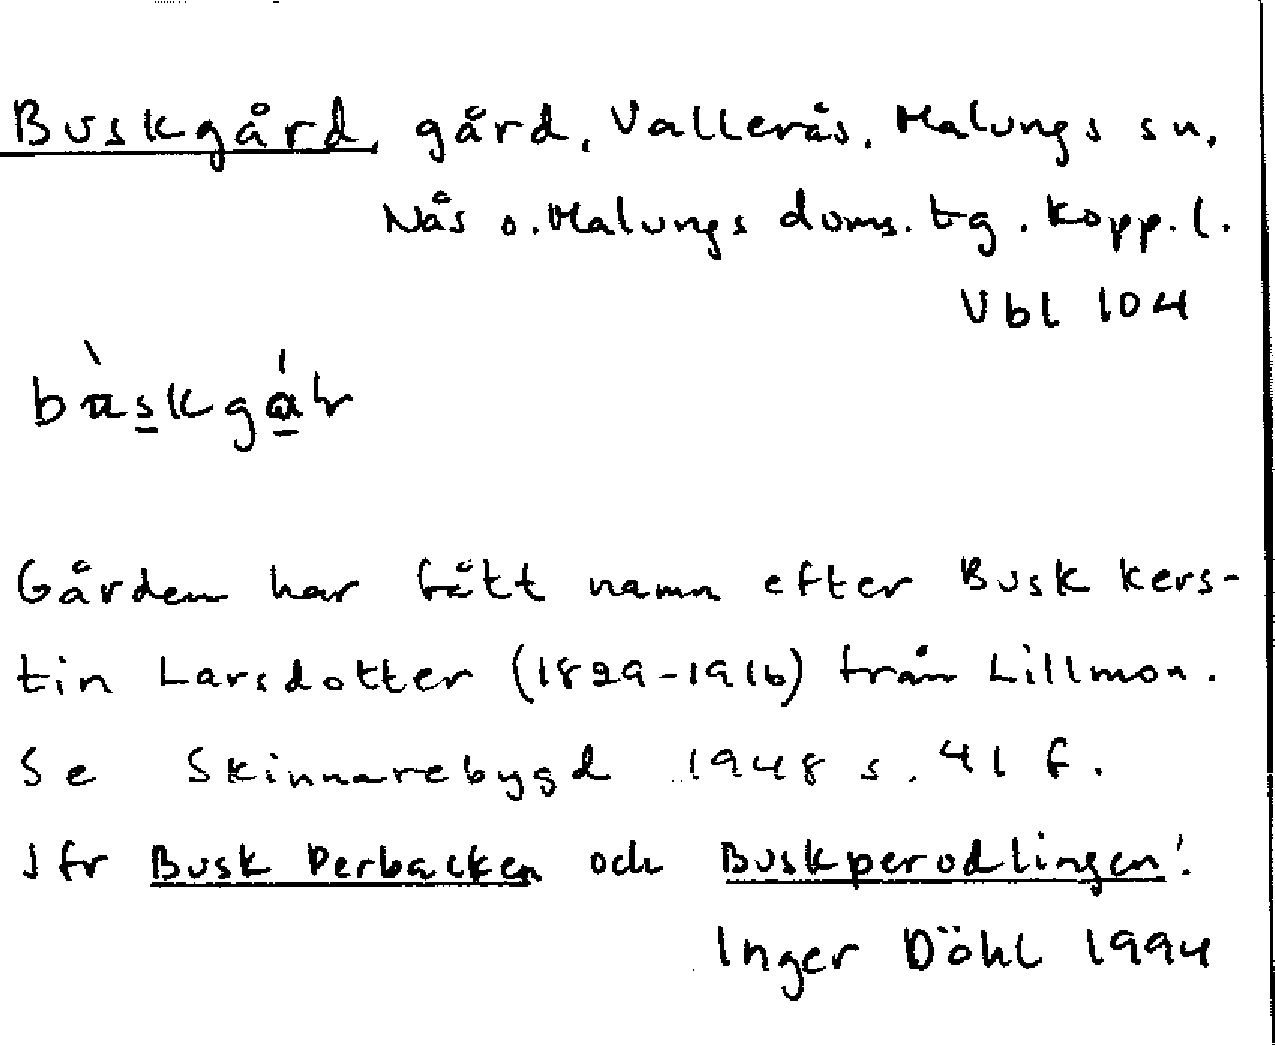 Buskgård, gård, Vallerås, Malungs sn,
Nås o. Malungs doms. tg. Kopp. l.
Vbl 104
Gården har fått namn efter Busk Kers-
tin Larsdotter (1829-1916) från Lillmon.
Se Skinnarebygd 1948 s. 41 f.
Jfr Busk Perbacken och Buskperodlingen!
Inger Döhl 1994